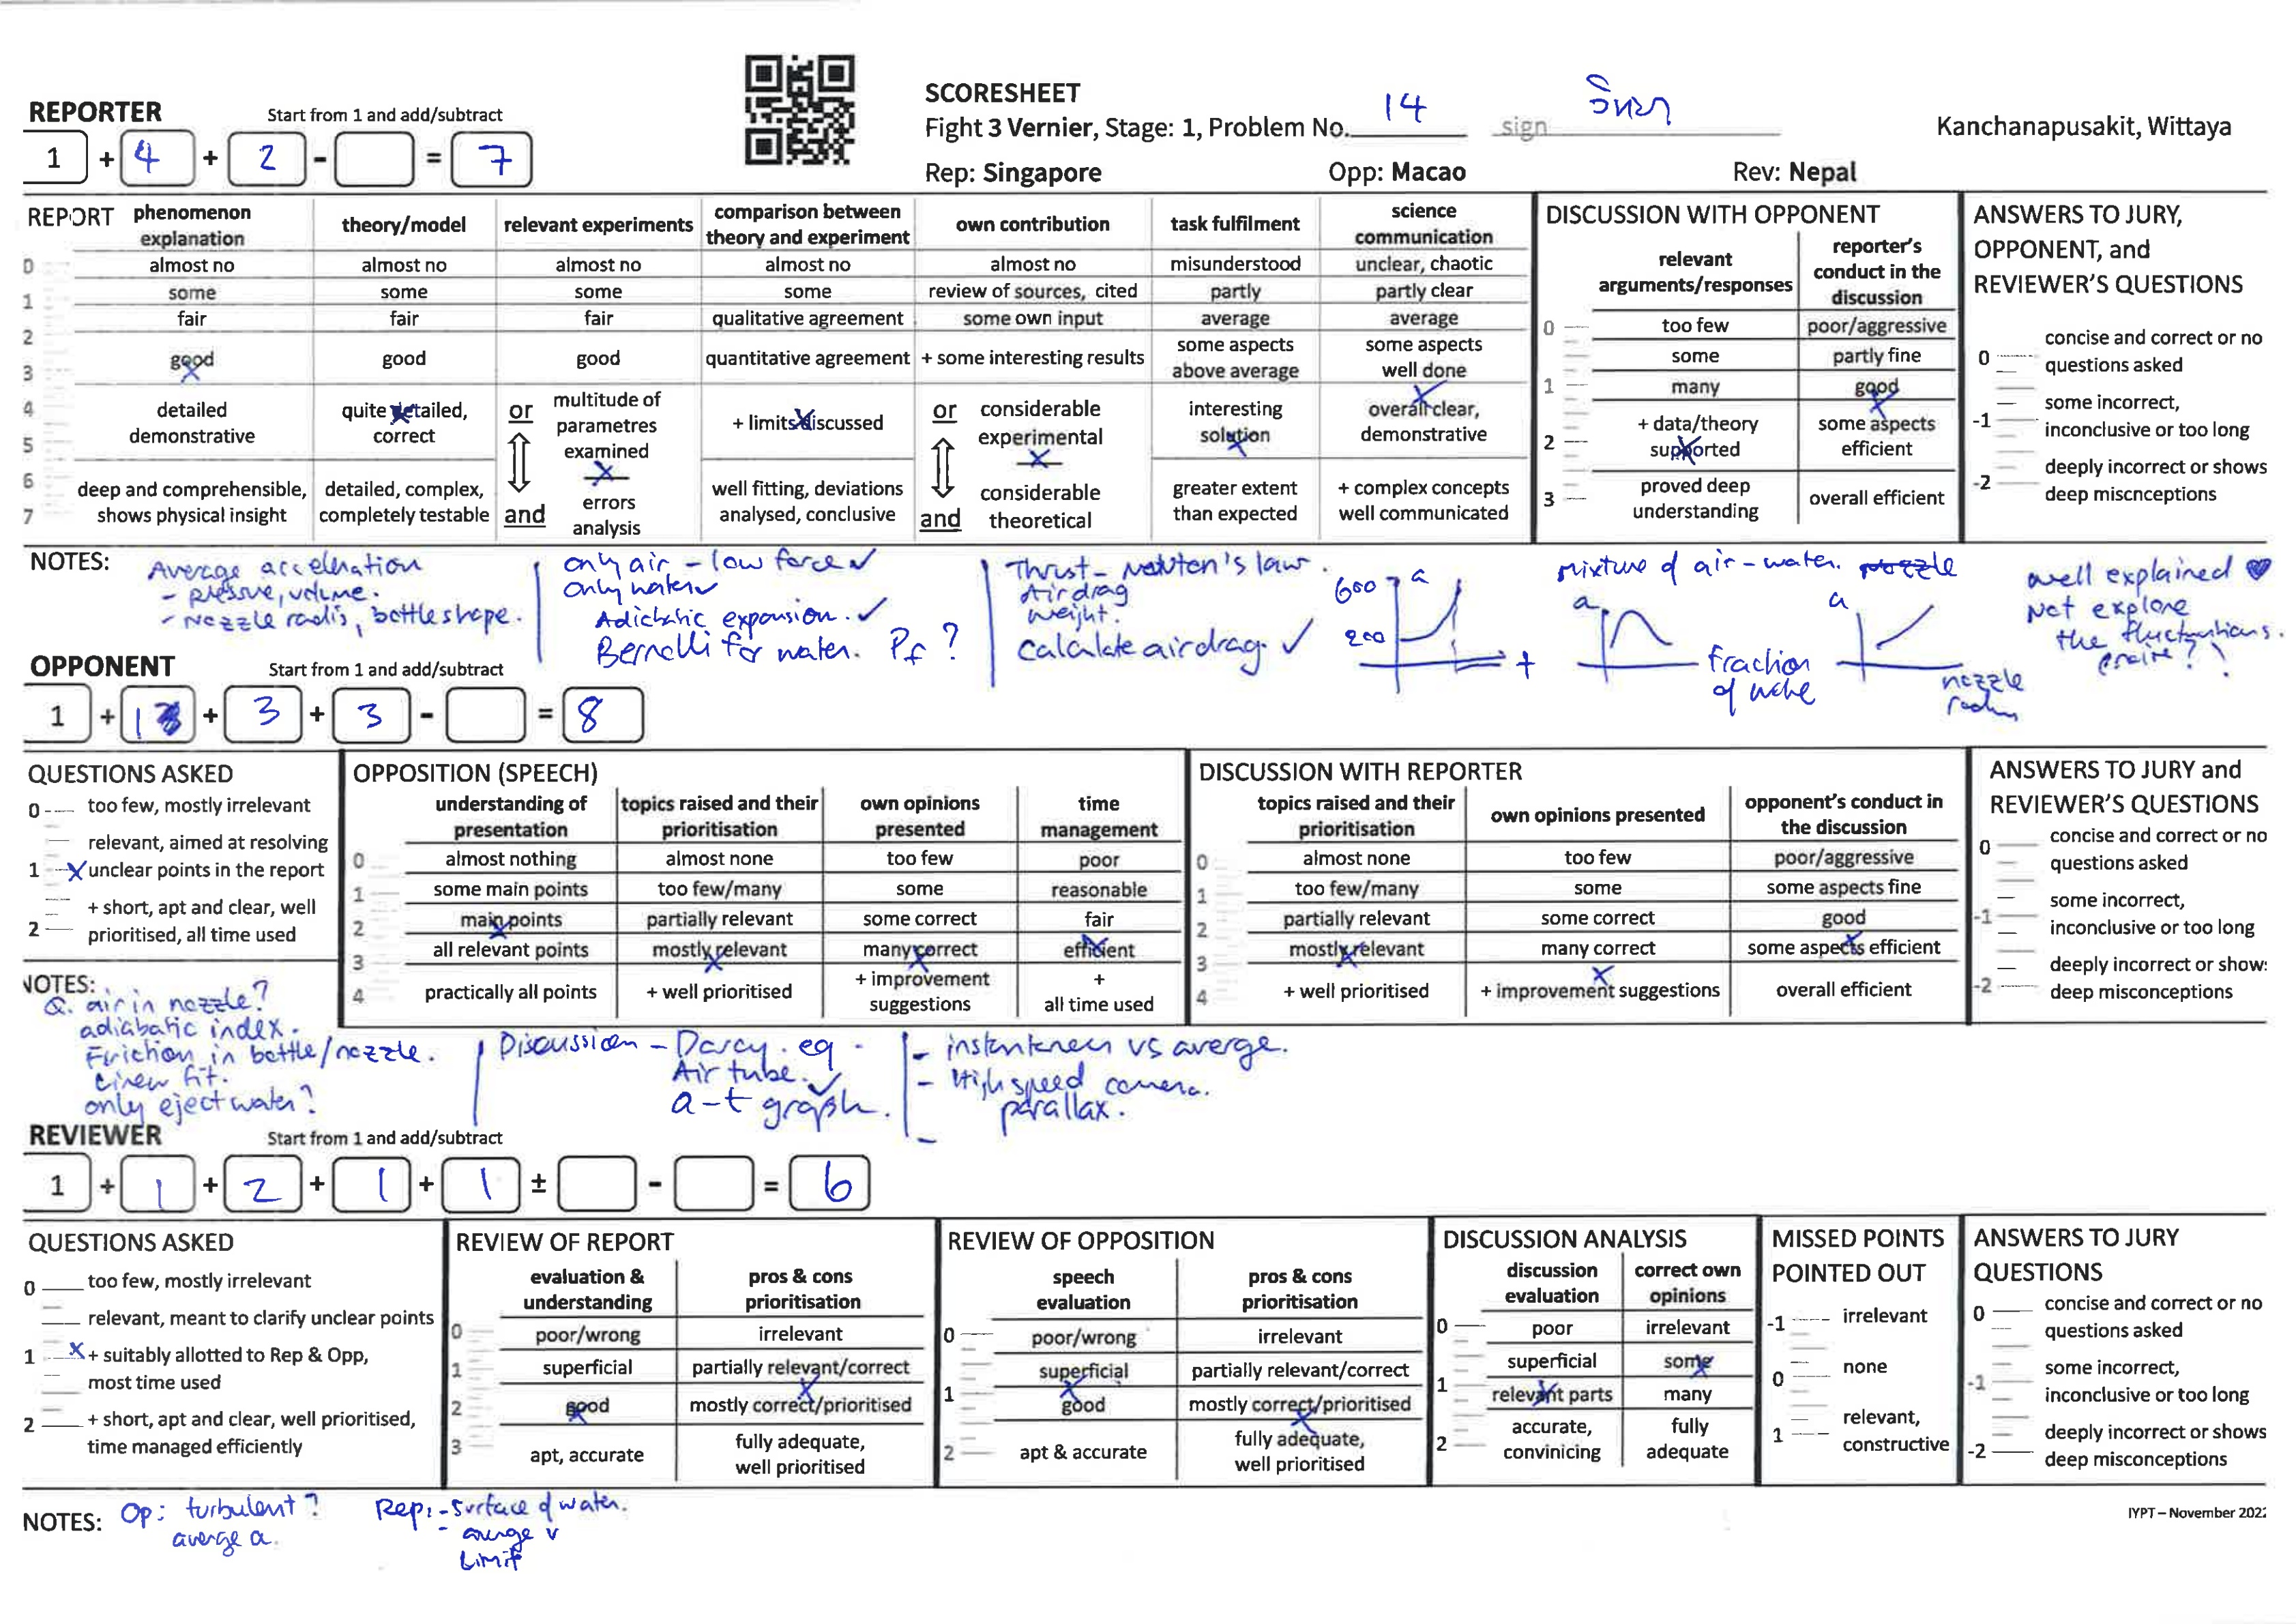 SCORESHEET
Fight 3 Vernier, Stage: 1, Problem No. 14 sign
Kanchanapusakit, Wittaya
Rep: Singapore Opp: Macao Rev: Nepal
REPORTER Start from 1 and add/subtract
1 + 4 + 2 - = 7
REPORT
phenomenon explanation
almost no
some
fair
good
detailed demonstrative
deep and comprehensible, shows physical insight
theory/model
almost no
some
fair
good
quite detailed, correct
detailed, complex, completely testable
relevant experiments
almost no
some
fair
good
or
multitude of parametres examined
and
errors analysis
comparison between theory and experiment
almost no
some
qualitative agreement
quantitative agreement
+ limits discussed
well fitting, deviations analysed, conclusive
own contribution
almost no
review of sources, cited
some own input
+ some interesting results
or
considerable experimental
and
considerable theoretical
task fulfilment
misunderstood
partly
average
some aspects above average
interesting solution
greater extent than expected
science communication
unclear, chaotic
partly clear
average
some aspects well done
overall clear, demonstrative
+ complex concepts well communicated
0
1
2
3
4
5
6
7
DISCUSSION WITH OPPONENT
relevant arguments/responses
too few
some
many
+ data/theory supported
proved deep understanding
reporter's conduct in the discussion
poor/aggressive
partly fine
good
some aspects efficient
overall efficient
0
1
2
3
ANSWERS TO JURY, OPPONENT, and REVIEWER'S QUESTIONS
0 concise and correct or no questions asked
-1 some incorrect, inconclusive or too long
-2 deeply incorrect or shows deep miscnceptions
NOTES:
Average acceleration
- pressure, volume.
- Nozzle radis, bottle shape.
only air - low force ✓
only water ✓
Adiabatic expansion. ✓
Bernolli for water. Pf ?
Thrust - Newton's law.
Air drag
weight.
Calculate air drag. ✓
600
200
a
t
mixture of air-water.
a
fraction of
a
nozzle
well explained ♥
Not explore
the fluctuations.
OPPONENT Start from 1 and add/subtract
1 + 1 + 3 + 3 - = 8
QUESTIONS ASKED
0 too few, mostly irrelevant
relevant, aimed at resolving
1 unclear points in the report
+ short, apt and clear, well
2 prioritised, all time used
OPPOSITION (SPEECH)
understanding of presentation
almost nothing
some main points
main points
all relevant points
practically all points
topics raised and their prioritisation
almost none
too few/many
partially relevant
mostly relevant
+ well prioritised
own opinions presented
too few
some
some correct
many correct
+ improvement suggestions
time management
poor
reasonable
fair
efficient
+
all time used
0
1
2
3
4
DISCUSSION WITH REPORTER
topics raised and their prioritisation
almost none
too few/many
partially relevant
mostly relevant
+ well prioritised
own opinions presented
too few
some
some correct
many correct
+ improvement suggestions
opponent's conduct in the discussion
poor/aggressive
some aspects fine
good
some aspects efficient
overall efficient
0
1
2
3
4
ANSWERS TO JURY and REVIEWER'S QUESTIONS
0 concise and correct or no questions asked
-1 some incorrect, inconclusive or too long
-2 deeply incorrect or show: deep misconceptions
NOTES:
Q. air in nozzle?
adiabatic index.
Friction in bottle/nozzle.
fit.
only eject water?
Discussion - Darcy. eq.
Air tube. ✓
a-t graph.
- instantaneous vs averge.
- High speed camera.
parallax.
REVIEWER Start from 1 and add/subtract
1 + 1 + 2 + 1 + 1 ± - = 6
QUESTIONS ASKED
0 too few, mostly irrelevant
relevant, meant to clarify unclear points
1 + suitably allotted to Rep & Opp, most time used
2 + short, apt and clear, well prioritised, time managed efficiently
REVIEW OF REPORT
evaluation & understanding
poor/wrong
superficial
good
apt, accurate
pros & cons prioritisation
irrelevant
partially relevant/correct
mostly correct/prioritised
fully adequate, well prioritised
0
1
2
3
REVIEW OF OPPOSITION
speech evaluation
poor/wrong
superficial
good
apt & accurate
pros & cons prioritisation
irrelevant
partially relevant/correct
mostly correct/prioritised
fully adequate, well prioritised
0
1
2
DISCUSSION ANALYSIS
discussion evaluation
poor
superficial
relevant parts
accurate, convinicing
correct own opinions
irrelevant
some
many
fully adequate
0
1
2
MISSED POINTS POINTED OUT
-1 irrelevant
0 none
1 relevant, constructive
ANSWERS TO JURY QUESTIONS
0 concise and correct or no questions asked
-1 some incorrect, inconclusive or too long
-2 deeply incorrect or shows deep misconceptions
NOTES:
Op: turbulent?
averge a.
Rep: - Surface of water.
- averge v
Limit
IYPT – November 2022